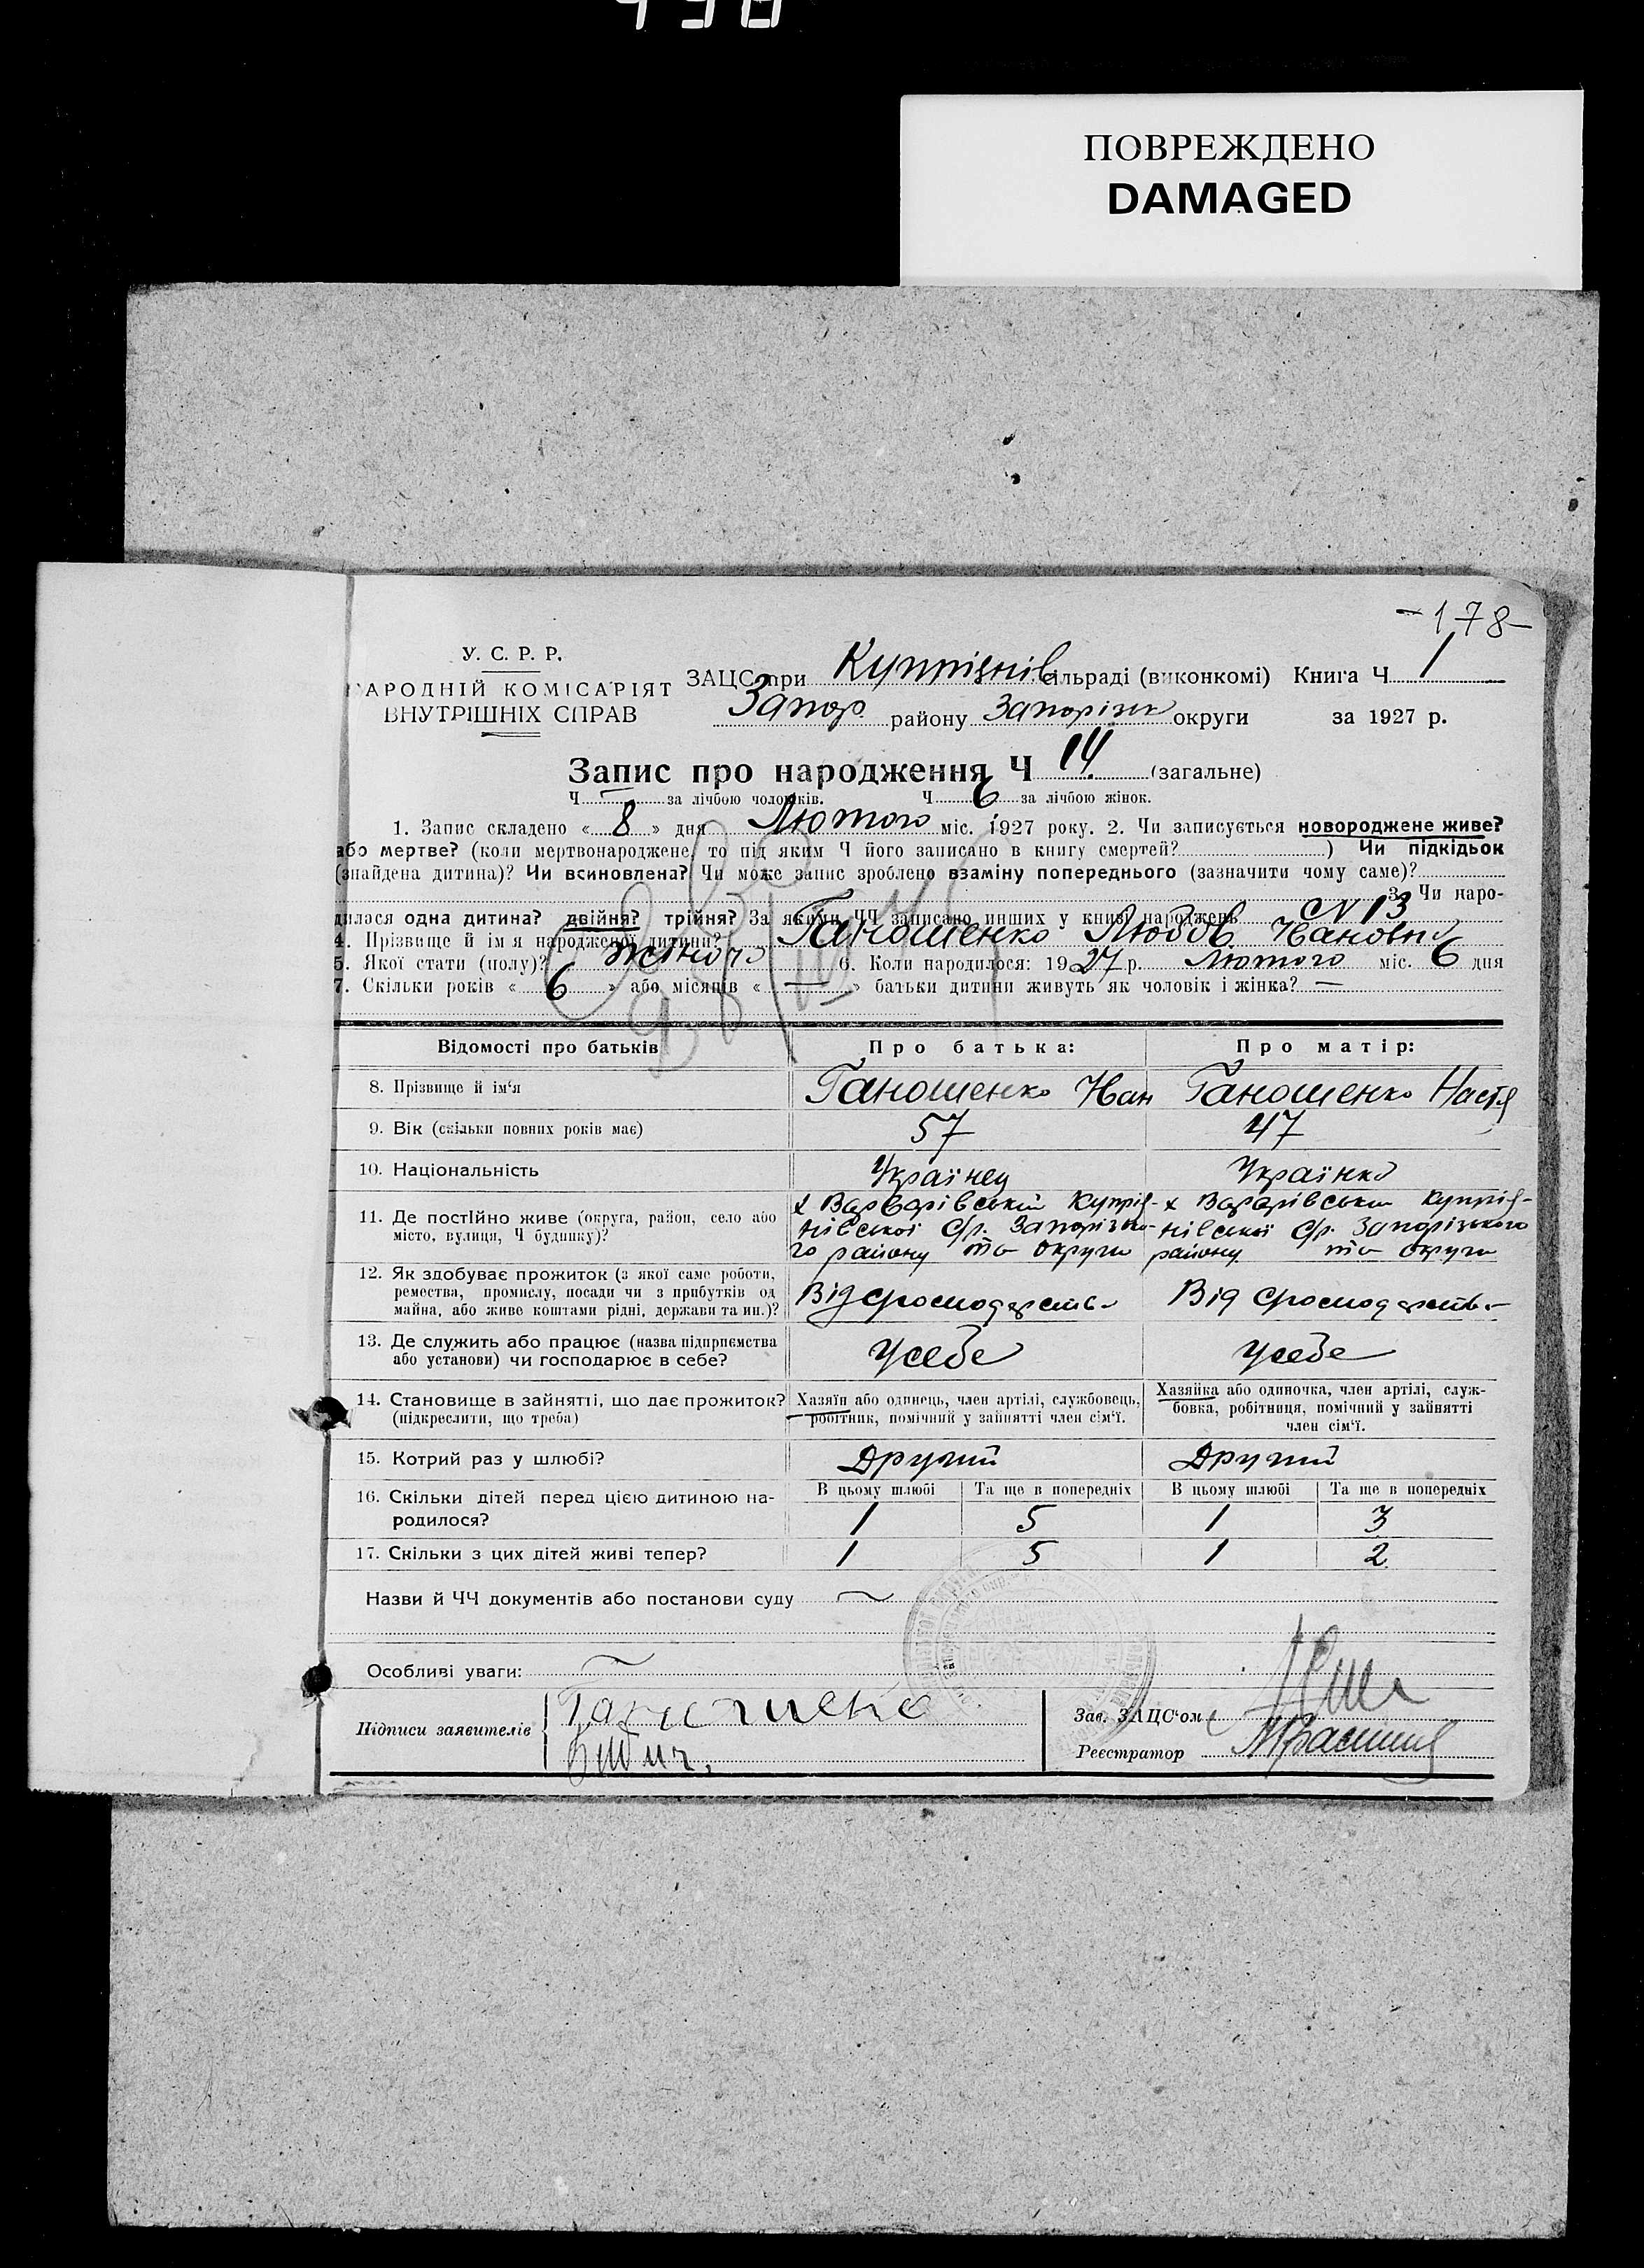 ПОВРЕЖДЕНО
DAMAGED
-178-
У. С. Р. Р.
НАРОДНІЙ КОМІСАРІЯТ
ВНУТРІШНІХ СПРАВ
ЗАЦС при Купріянів сільраді (виконкомі) Книга Ч 1
Запор. району Запорізьк округи за 1927 р.
Запис про народження Ч 14 (загальне)
Ч — за лічбою чоловіків. Ч 6 за лічбою жінок.
1. Запис складено « 8 » дня Лютого міс. 1927 року. 2. Чи записується новороджене живе?
або мертве? (коли мертвонароджене, то під яким Ч його записано в книгу смертей? ) Чи підкідьок
(знайдена дитина)? Чи всиновлена? Чи може запис зроблено взаміну попереднього (зазначити чому саме)?
3. Чи наро-
дилася одна дитина? двійня? трійня? За якими ЧЧ записано инших у книзі народжень N 13
4. Прізвище й ім'я народженої дитини? Ганошенко Любов Ивановна
5. Якої стати (полу)? жіночо 6. Коли народилося: 1927 р. Лютого міс. 6 дня
7. Скільки років « 6 » або місяців « — » батьки дитини живуть як чоловік і жінка? —
Відомості про батьків Про батька: Про матір:
8. Прізвище й ім'я Ганошенко Иван Ганошенко Настя
9. Вік (скільки повних років має) 57 47
10. Національність Українец Українка
11. Де постійно живе (округа, район, село або місто, вулиця, Ч будинку)?
х Варварівський Купрія-
нівської С/р. Запорізько-
го району та округи
х Варварівський Купрія-
нівської С/р. Запорізького
району та округи
12. Як здобуває прожиток (з якої саме роботи,
ремества, промислу, посади чи з прибутків од
майна, або живе коштами рідні, держави та ин.)?
Від Господарства Від Господарства
13. Де служить або працює (назва підприємства
або установи) чи господарює в себе?
У себе У себе
14. Становище в зайнятті, що дає прожиток?
(підкреслити, що треба)
Хазяїн або одинець, член артілі, службовець,
робітник, помічний у зайнятті член сім'ї.
Хазяйка або одиночка, член артілі, служ-
бовка, робітниця, помічний у зайнятті
член сім'ї.
15. Котрий раз у шлюбі? Другий Другий
16. Скільки дітей перед цією дитиною на-
родилося?
В цьому шлюбі Та ще в попередніх В цьому шлюбі Та ще в попередніх
1 5 1 3
17. Скільки з цих дітей живі тепер? 1 5 1 2
Назви й ЧЧ документів або постанови суду
Особливі уваги:
Підписи заявителів
Зав. ЗАЦС'ом
Реєстратор